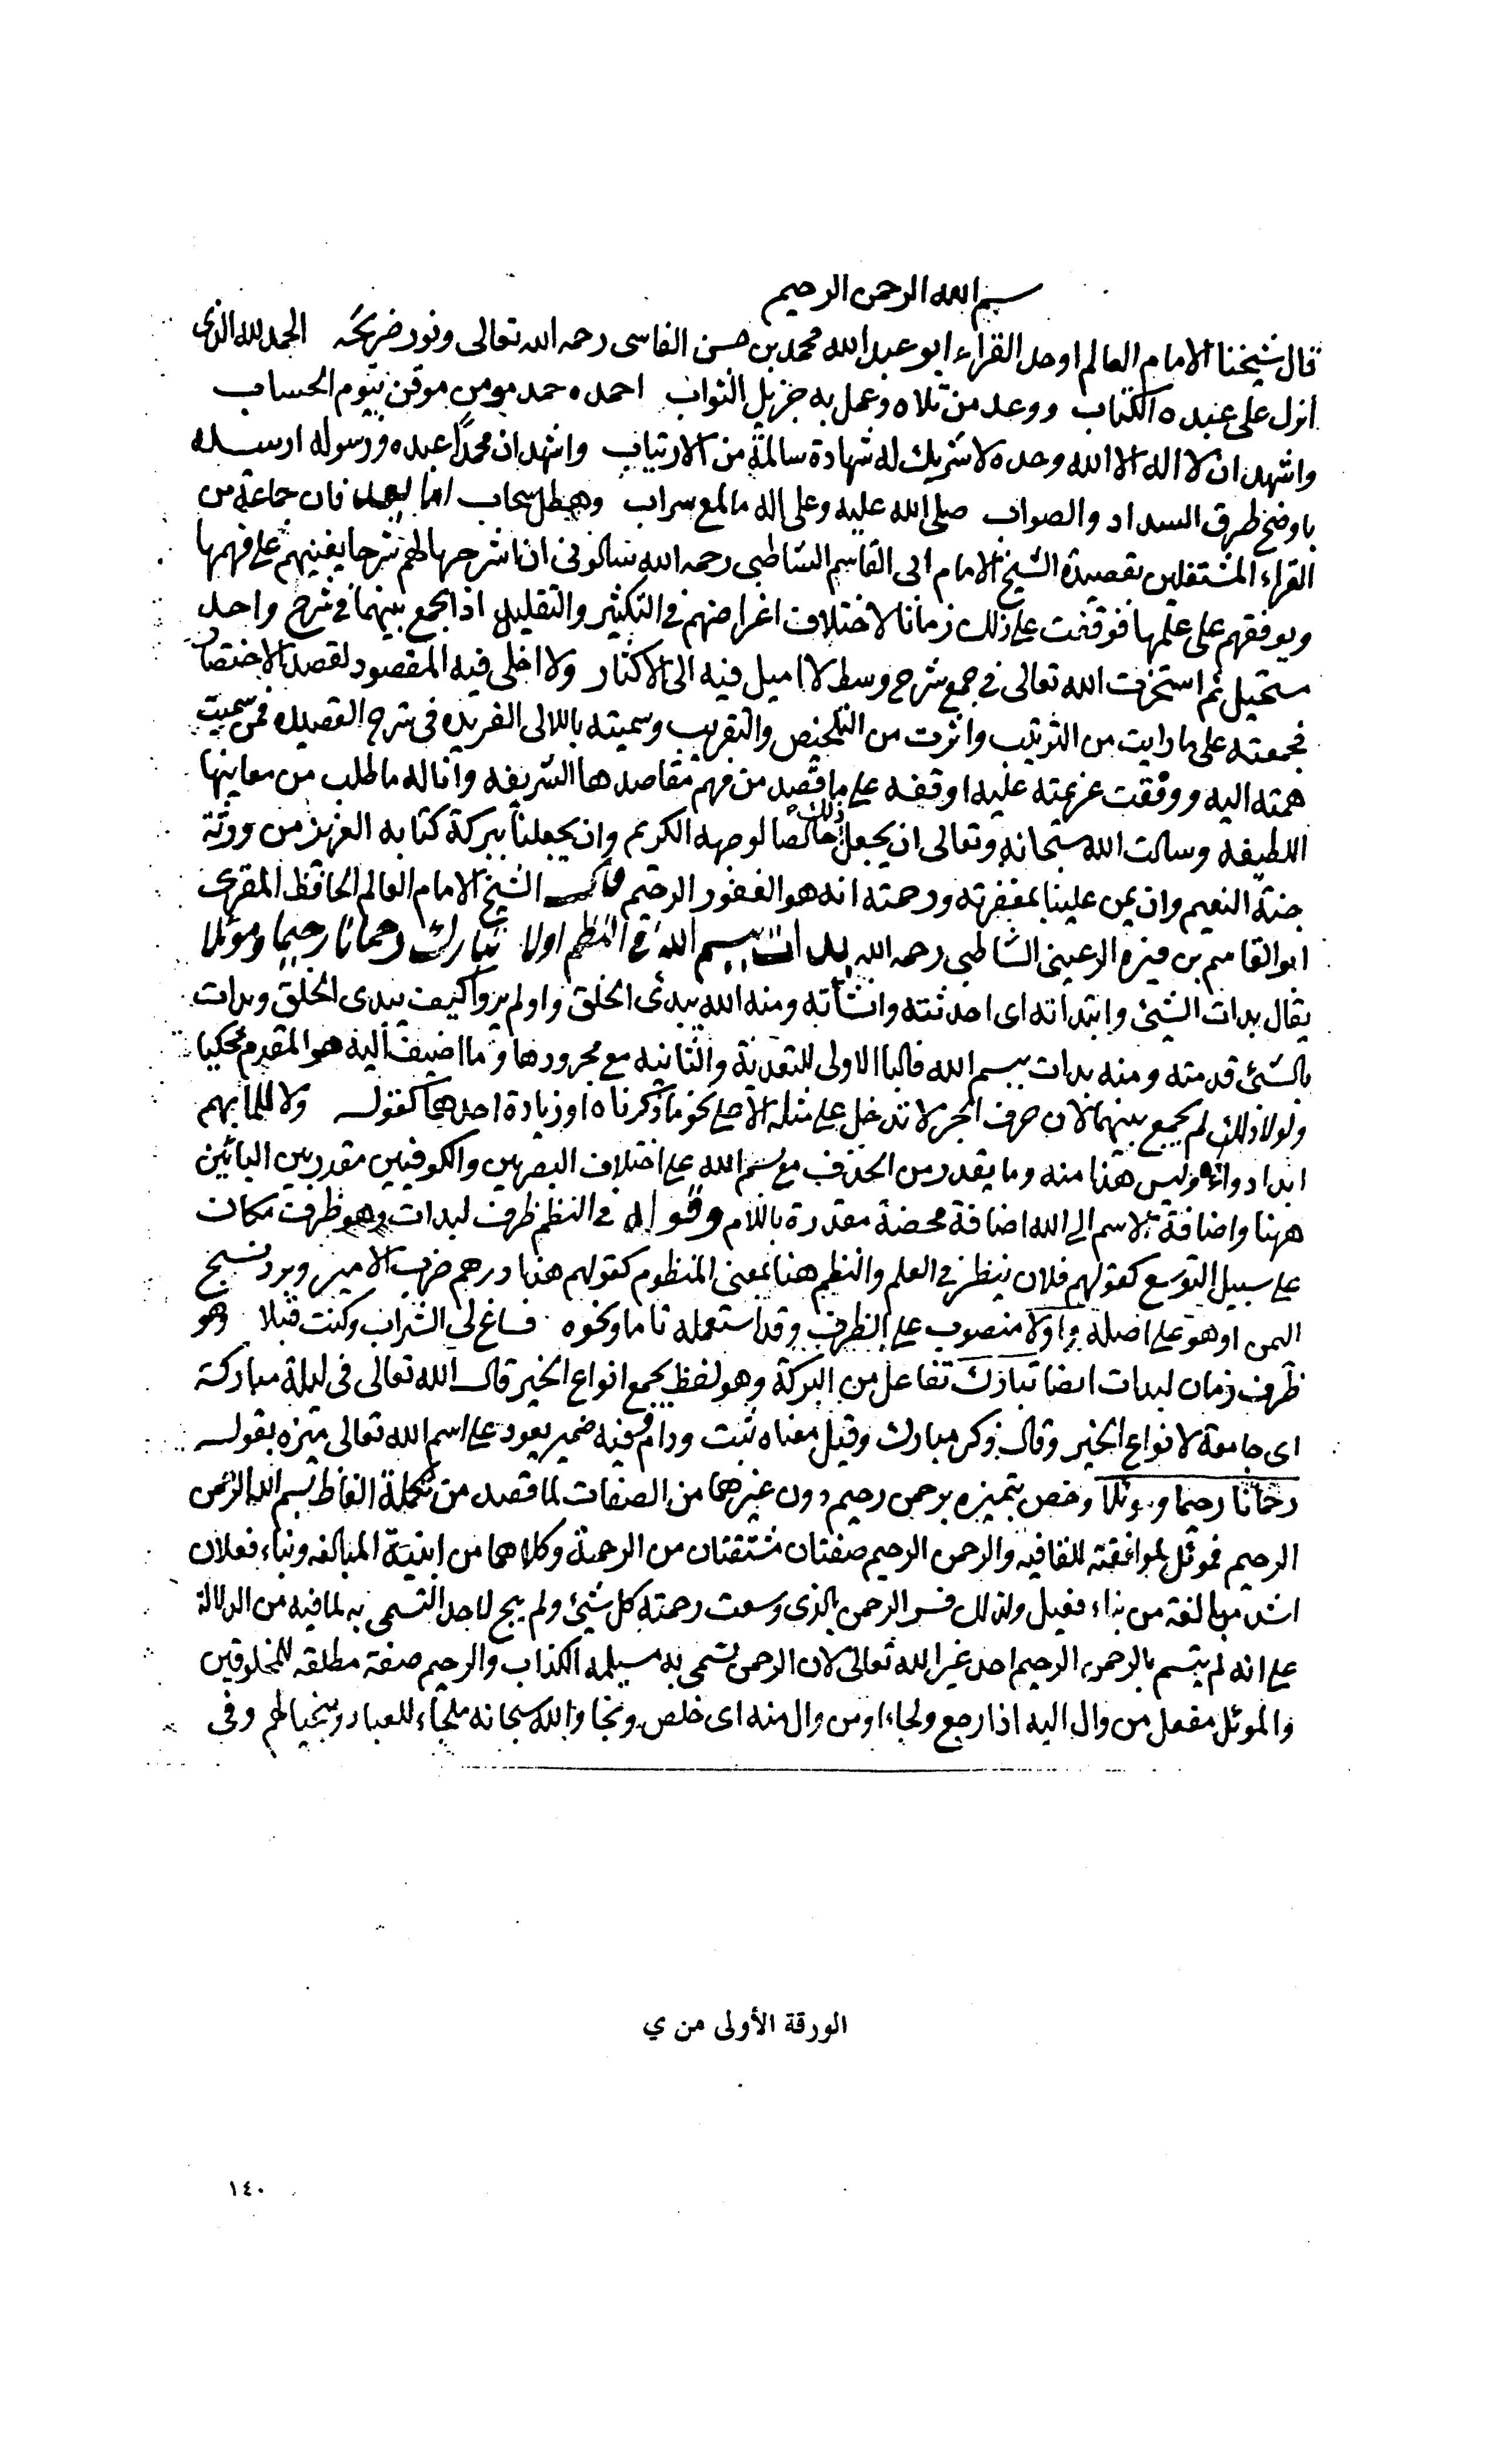 بسم الله الرحمن الرحيم
قال شيخنا الامام العالم اوحد القراء ابو عبد الله محمد بن حسن الفاسى رحمه الله تعالى ونور ضريحه الحمد لله الذى
انزل على عبده الكتاب ووعد من تلاه وعمل به جزيل الثواب احمده حمد مومن موقن بيوم الحساب
واشهد ان لا اله الا الله وحده لا شريك له شهادة سالمة من الارتياب واشهد ان محمدًا عبده ورسوله ارسله
باوضح طرق السداد والصواب صلى الله عليه وعلى اله ما لمع سراب وهطل سحاب اما بعد فان جماعة من
القراء المشتغلين بقصيدة الشيخ الامام ابى القاسم الشاطبى رحمه الله سالونى ان اشرحها لهم شرحا يعينهم على فهمها
ويوفقهم على علمها فوقفت على ذلك زمانا لاختلاف اغراضهم في التكثير والتقليل اذ الجمع بينهما في شرح واحد
مستحيل ثم استخرت الله تعالى في جمع شرح وسط لا اميل فيه الى الاكثار ولا اخلى فيه المقصود لقصد الاختصار
فجمعته على ما رايت من الترتيب واثرت من التلخيص والتقريب وسميته باللالى الفريده فى شرح القصيده فمن سميت
همته اليه ووقفت عزيمته عليه اوقفه على ما قصد من فهم مقاصدها الشريفه واناله ما طلب من معاينها
اللطيفه وسالت الله سبحانه وتعالى ان يجعل ذلك خالصا لوجهه الكريم وان يجعلنا ببركة كتابه العزيز من ورثة
جنة النعيم وان يمن علينا بمغفرته ورحمته انه هو الغفور الرحيم قال الشيخ الامام العالم الحافظ المقرى
ابو القاسم بن فيره الرعينى الشاطبى رحمه الله بدات ببسم الله في النظم اولا تبارك رحمانا رحيما وموئلا
يقال بدات الشيئ وابتداته اى احدثته وانشاته ومنه الله يبدئ الخلق واولم يروا كيف يبدى الخلق وبدات
بالشئ قدمته ومنه بدات ببسم الله فالبا الاولى للتعدية والثانيه مع مجرورها وما اضيف اليه هو المقدم محكيا
ولولا ذلك لم يجمع بينهما لان حرف الجر لا تدخل على مثله الا على نحو ما ذكرناه او زيادة احدهما كقوله ولا للما بهم
ابدا دواء وليس هذا منه وما يقدر من الحذف مع بسم الله على اختلاف البصريين والكوفيين مقدر بين البائين
ههنا واضافة الاسم الى الله اضافة محضة مقدرة باللام وقوله في النظم ظرف لبدات وهو ظرف مكان
على سبيل التوسع كقولهم فلان ينظر في العلم والنظم هنا بمعنى المنظوم كقولهم هذا درهم ضرب الامير وبرد نسيج
اليمن او هو على اصله واولا منصوب على الظرف وقد استعمله تاما ونحوه فساغ لى الشراب وكنت قبلا وهو
ظرف زمان لبدات ايضا تبارك تفاعل من البركة وهو لفظ يجمع انواع الخير قال الله تعالى فى ليلة مباركة
اى جامعة لانواع الخير وقال ذكر مبارك وقيل معناه ثبت ودام وفيه ضمير يعود على اسم الله تعالى ميزه بقوله
رحمانا رحيما وموئلا وخص بتميزه برحمن رحيم دون غيرها من الصفات لما قصد من تكملة الفاظ بسم الله الرحمن
الرحيم فموئل لموافقته للقافيه والرحمن الرحيم صفتان مشتقتان من الرحمة وكلاهما من ابنية المبالغه وبناء فعلان
اشد مبالغة من بناء فعيل ولذلك فسر الرحمن بالذى وسعت رحمته كل شيئ ولم يبح لاحد التسمى به لما فيه من الدلالة
على انه لم يتسم بالرحمن الرحيم احد غير الله تعالى لان الرحمن تسمى به مسيلمه الكذاب والرحيم صفة مطلقه للمخلوقين
والموئل مفعل من وال اليه اذا رجع ولجاء او من وال منه اى خلص ونجا والله سبحانه ملجاء للعباد ومنجيا لهم وفى
الورقة الأولى من ي
١٤٠